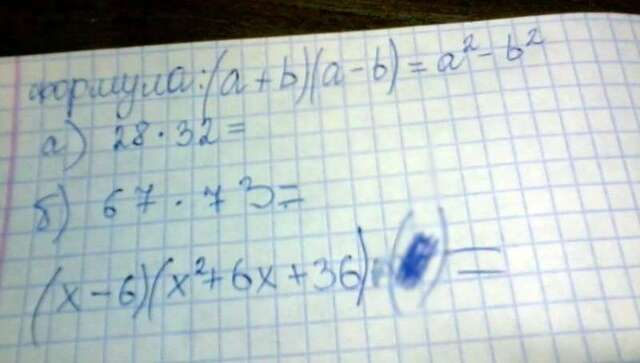 формула: (a+b)(a-b)=a²-b²
а) 28·32=
б) 67·73=
(x-6)(x²+6x+36)·( )=